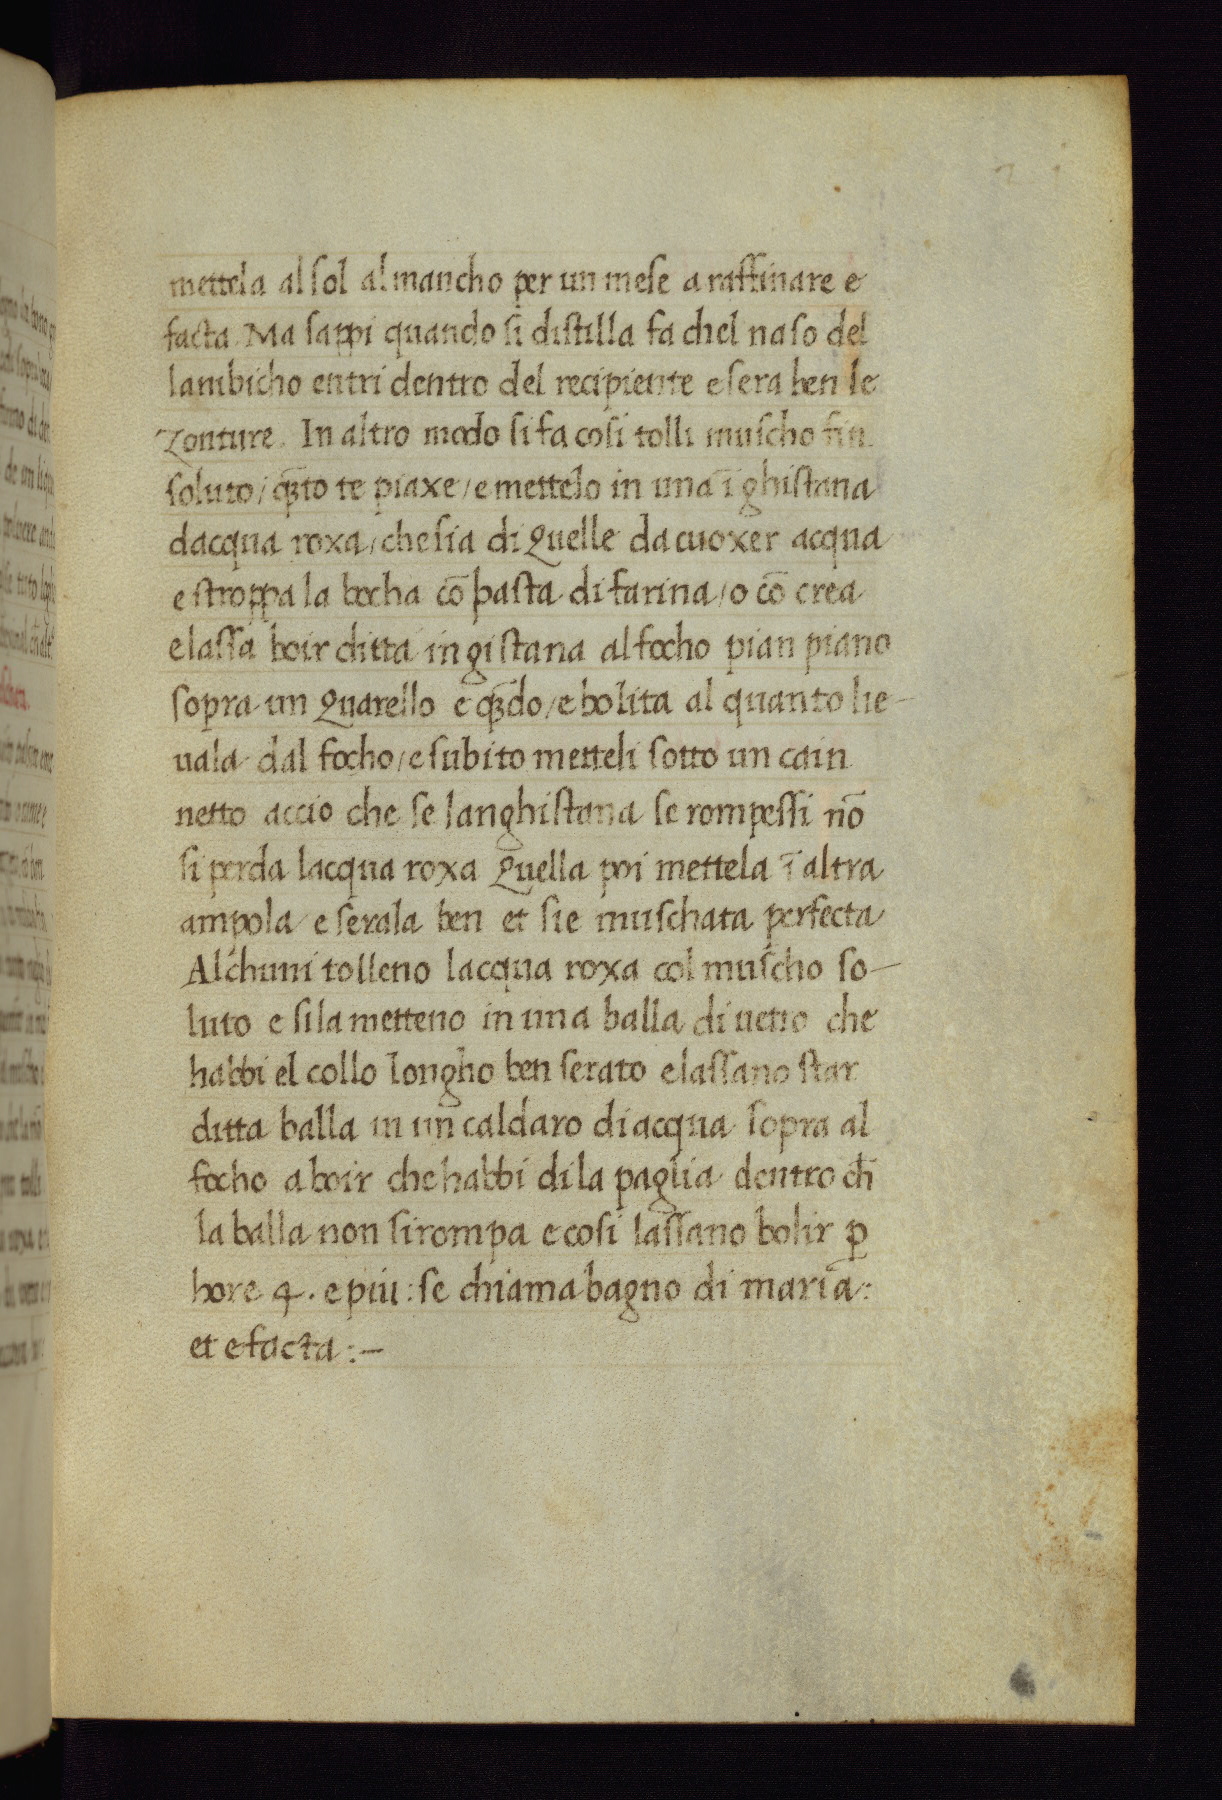 mettela al sol al mancho per un mese a raffinare e
facta. Ma sappi quando si distilla fa chel naso del
lambicho entri dentro del recipiente e sera ben le
Zonture. In altro modo si fa cosi tolli muscho fin
soluto / qz̄to te piaxe / e mettelo in una ī ghistana
dacqua roxa / che sia di Quelle da cuoxer acqua
e stroppa la bocha cō pasta di farina / o cō crea
e lassa boir ditta ingistana al focho pian piano
sopra un Quarello e qz̄do / e bolita al quanto lie-
uala dal focho / e subito metteli sotto un cain
netto accio che se langhistana se rompessi nō
si perda lacqua roxa Quella poi mettela ī altra
ampola e serala ben et sie muschata perfecta
Alchuni tolleno lacqua roxa col muscho so-
luto e si la metteno in una balla di uetro che
habbi el collo longho ben serato e lassano star
ditta balla in un caldaro di acqua sopra al
focho a boir che habbi di la paglia dentro ch̄
la balla non si rompa e cosi lassano bolir ꝑ
hore 4. e piu : se chiama bagno di maria :
et e facta :-